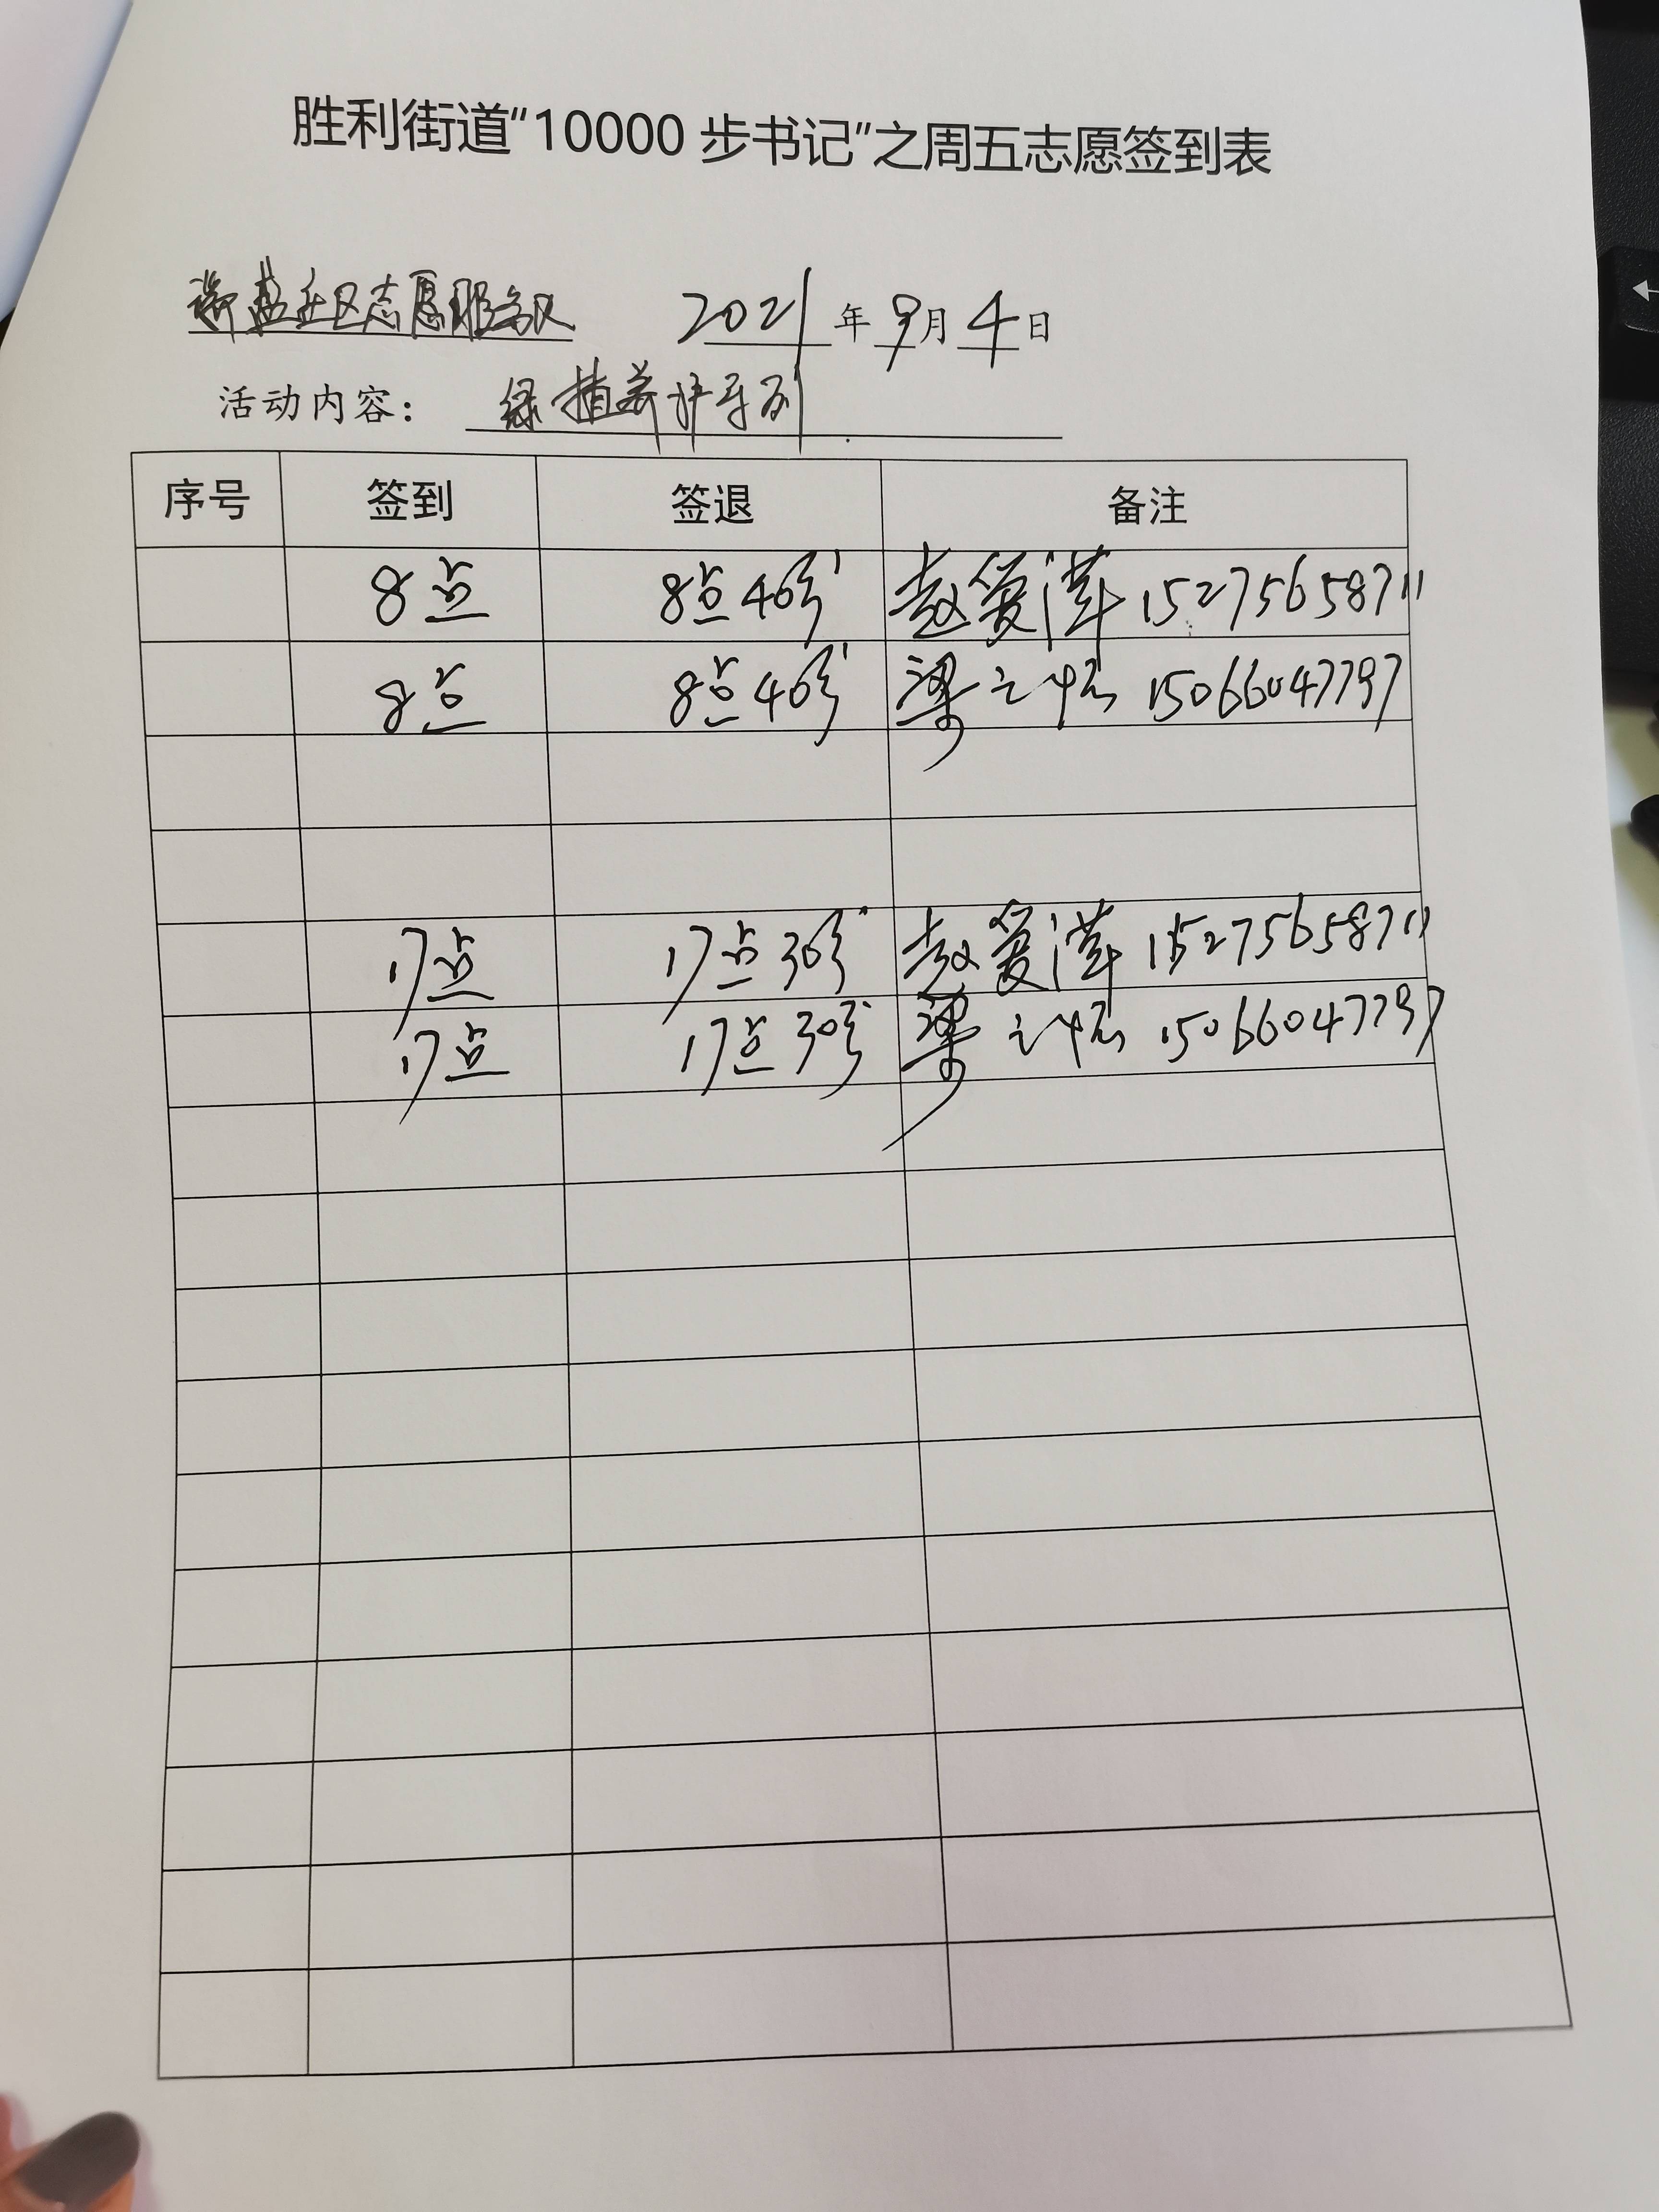 胜利街道“10000 步书记”之周五志愿签到表
社区志愿服务队 2021 年 9 月 4 日
活动内容: 绿植养护系列
序号 签到 签退 备注
8点 8点40分 赵爱 15275658711
8点 8点40分 梁 15066047797
17点 17点30分 赵爱 15275658711
17点 17点30分 梁 15066047797